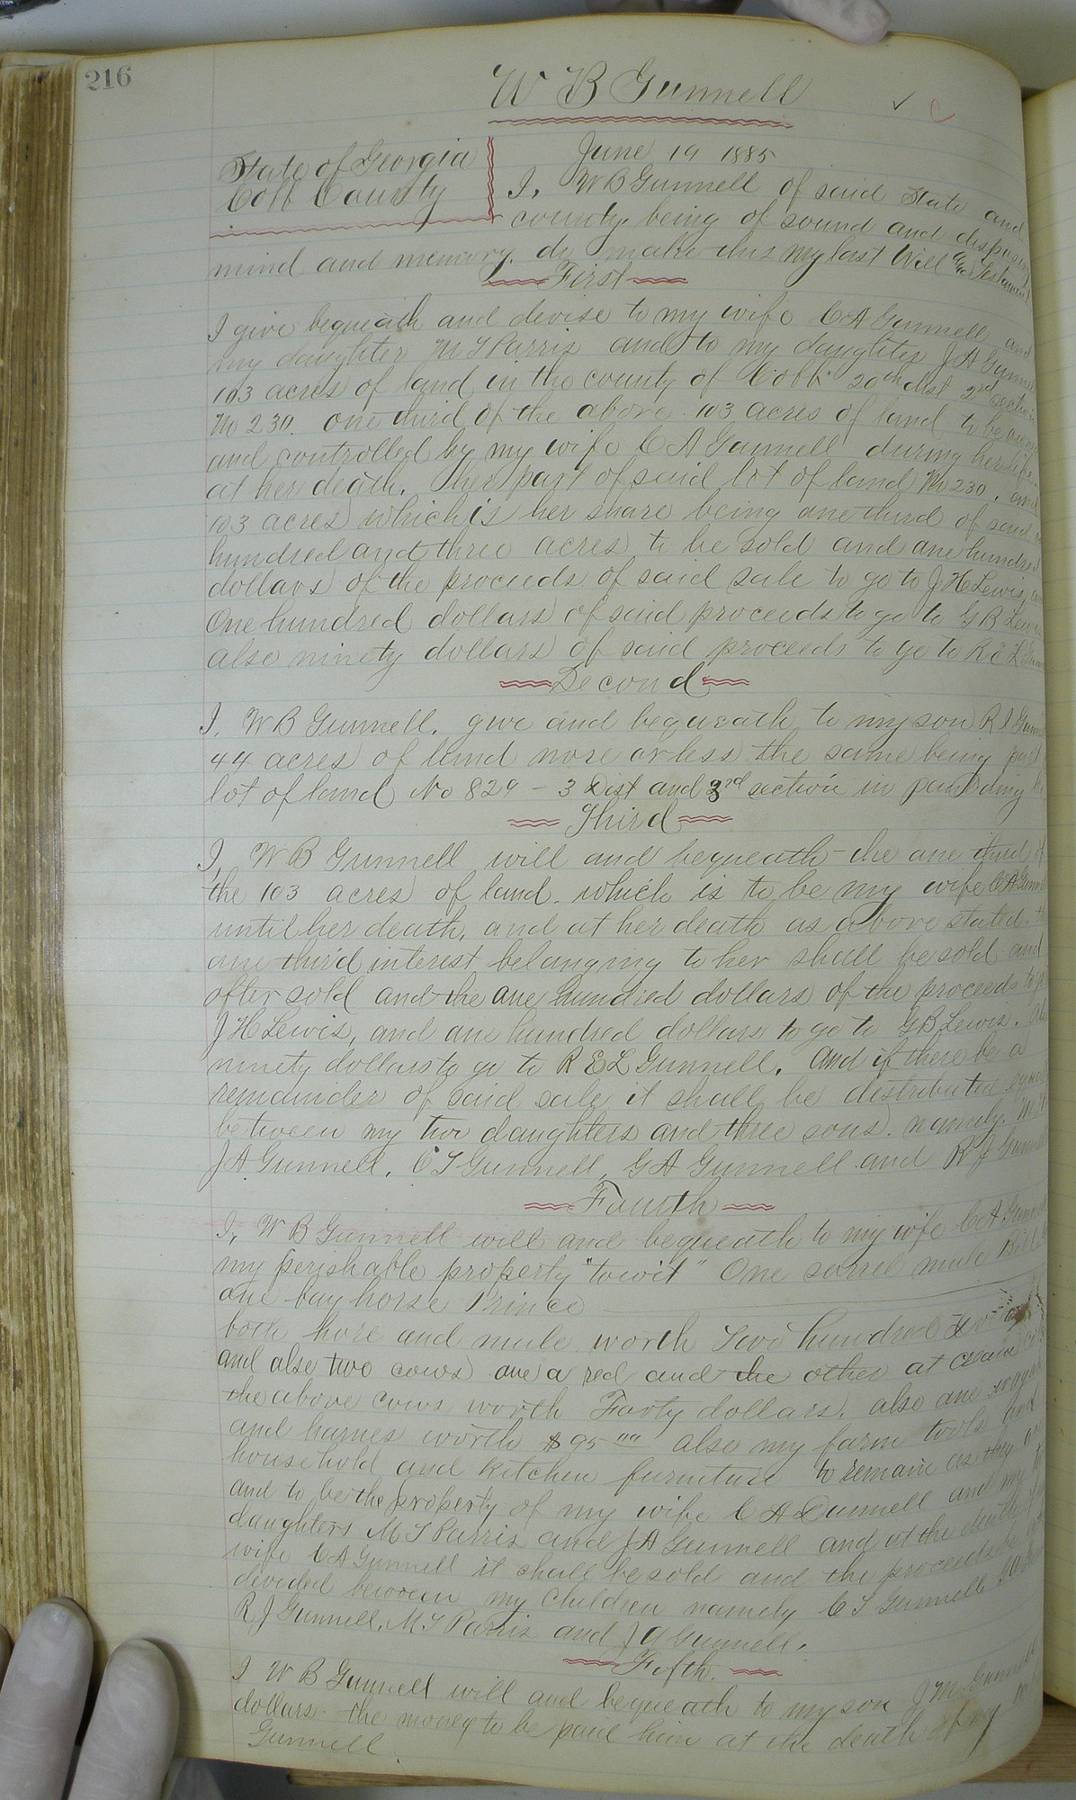 216
W B Gunnell
✓ C
June 19 1885
State of Georgia
Cobb County
I, W B Gunnell of said State and
county being of sound and disposing
mind and memory. do make this my last Will and Testament
First
I give bequeath and devise to my wife C A Gunnell and
my daughter M T Parris and to my daughter J A
103 acres of land in the county of Cobb 20th dist 2nd section
No 230. one third of the above 103 acres of land to be
and controlled by my wife C A Gunnell during her life
at her death. Her part of said lot of land No 230. and
103 acres which is her share being one third of said
hundred and three acres to be sold and one hundred
dollars of the proceeds of said sale to go to J H Lewis
One hundred dollars of said proceeds to go to G B Lewis
also ninety dollars of said proceeds to go to R E L
Second
I, W B Gunnell, give and bequeath to my son R J
44 acres of land more or less the same being part
lot of land No 829 - 3 Dist and 3rd section in paulding
Third
I, W B Gunnell will and bequeath the one third of
the 103 acres of land. which is to be my wife C A
until her death, and at her death as above stated
one third interest belonging to her shall be sold and
after sold and the one hundred dollars of the proceeds to
J H Lewis, and one hundred dollars to go to G B Lewis.
ninety dollars to go to R E L Gunnell. And if there be a
remainder of said sale it shall be distributed
between my two daughters and three sons. namely.
J A Gunnell, C T Gunnell, G A Gunnell and R J
Fourth
I, W B Gunnell will and bequeath to my wife C A
my perishable property "towit" One sorrel mule
one bay horse Prince
both hors and mule worth Two hundred
and also two cows one a red and the other
the above cows worth Forty dollars. also one
and harness worth $95 00 also my farm tools and
household and kitchen furniture to remain as they
and to be the property of my wife C A Gunnell and my
daughters M T Parris and J A Gunnell and at the death
wife C A Gunnell it shall be sold and the proceeds
divided between my Children namely C T Gunnell
R J Gunnell, M T Parris and J A Gunnell.
Fifth.
I W B Gunnell will and bequeath to my son J M
dollars the money to be paid him at the death of my
Gunnell